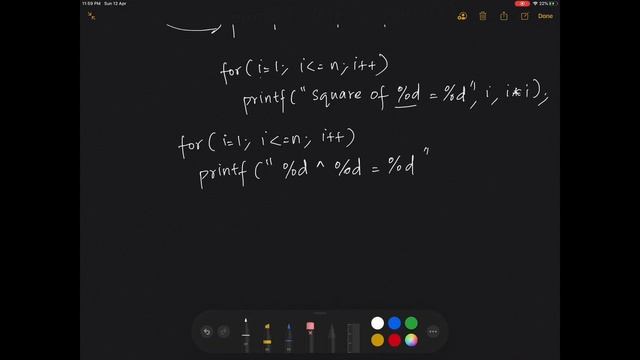 11:59 PM Sun 12 Apr
22%
Done
for(i=1; i<=n; i++)
printf("Square of %d = %d", i, i*i);
for(i=1; i<=n; i++)
printf("%d ^ %d = %d"